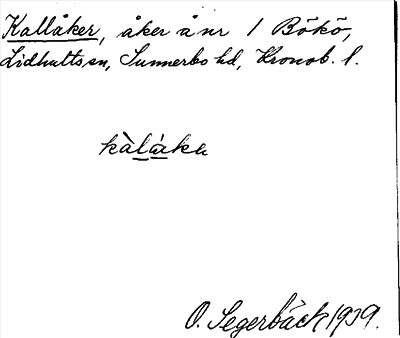 Kallåker, åker å nr 1 Bökö,
Lidhults sn, Sunnerbo hd, Kronob. l.
kàlåka
O. Segerbäck 1939.